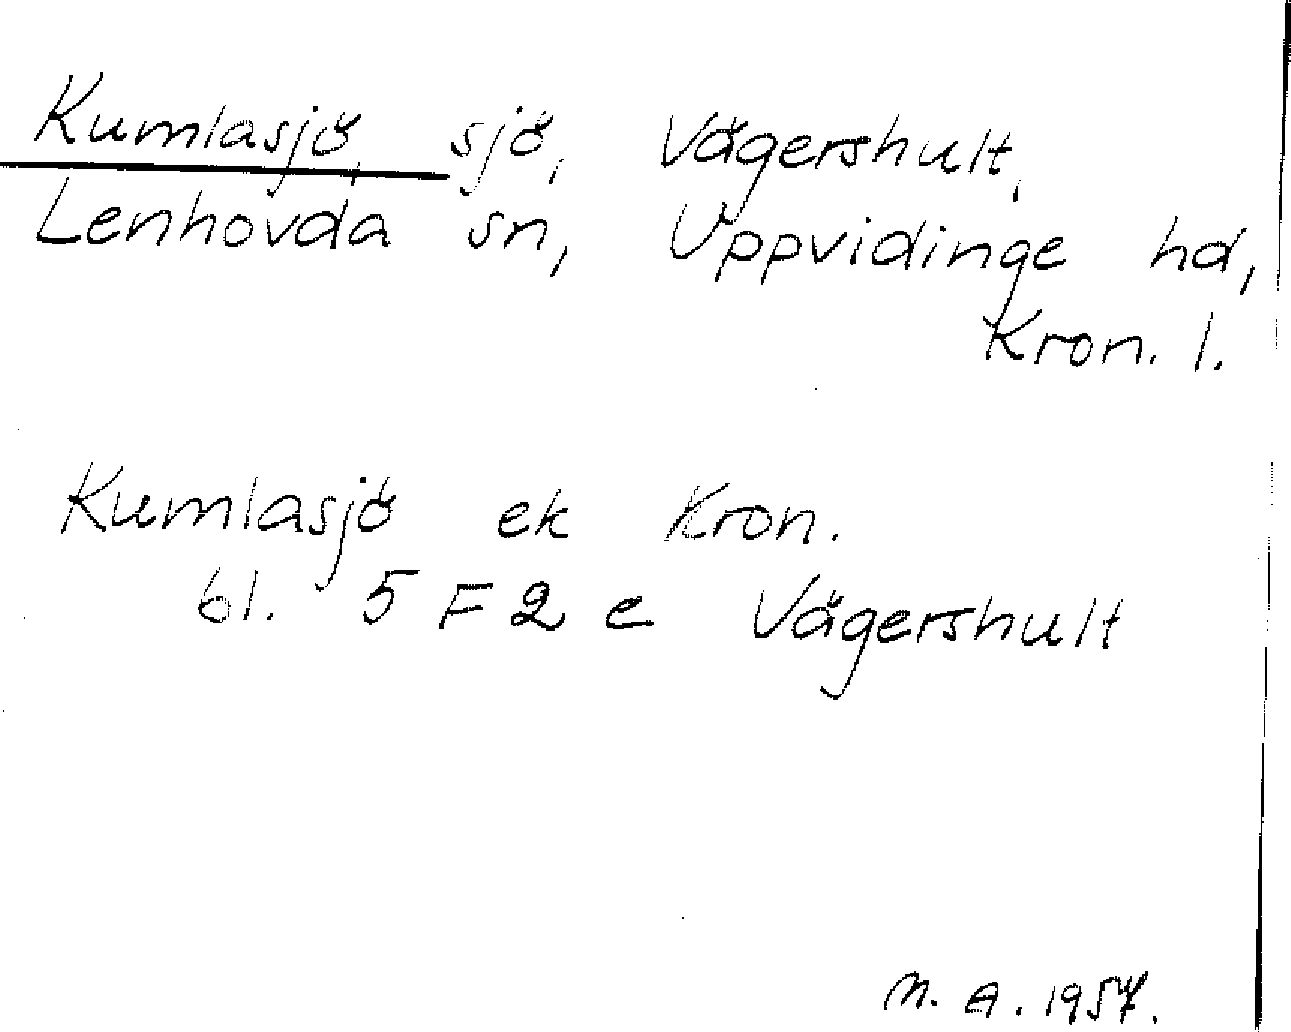 Kumlasjö, sjö, Vägershult,
Lenhovda sn, Uppvidinge hd,
Kron. l.
Kumlasjö ek Kron.
bl. 5 F 2 e Vägershult
M. A. 1957.